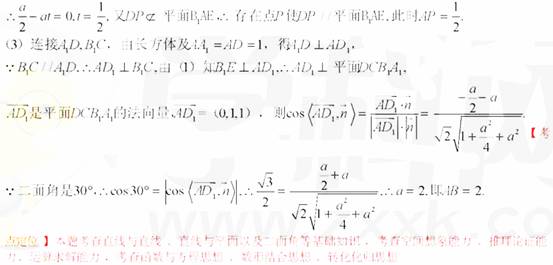 ∴ a/2 − at = 0, t = 1/2, 又DP ⊄ 平面B₁AE, ∴ 存在点P使DP // 平面B₁AE, 此时AP = 1/2.
(3) 连接A₁D, B₁C, 由长方体及AA₁ = AD = 1, 得A₁D ⊥ AD₁,
∵ B₁C // A₁D, ∴ AD₁ ⊥ B₁C, 由 (1) 知B₁E ⊥ AD₁, ∴ AD₁ ⊥ 平面DCB₁A₁,
AD₁是平面DCB₁A₁的法向量, AD₁ = (0,1,1), 则cos⟨AD₁, n⟩ = (AD₁·n)/(|AD₁|·|n|) = (−a/2 − a)/(√2 √(1 + a²/4 + a²)) 【考
∵ 二面角是30°, ∴ cos30° = |cos⟨AD₁, n⟩|, ∴ √3/2 = (a/2 + a)/(√2 √(1 + a²/4 + a²)), ∴ a = 2, 即AB = 2.
点定位】本题考查直线与直线、直线与平面以及二面角等基础知识,考查空间想象能力,推理论证能
力,运算求解能力,考查函数与方程思想,数形结合思想,转化化归思想